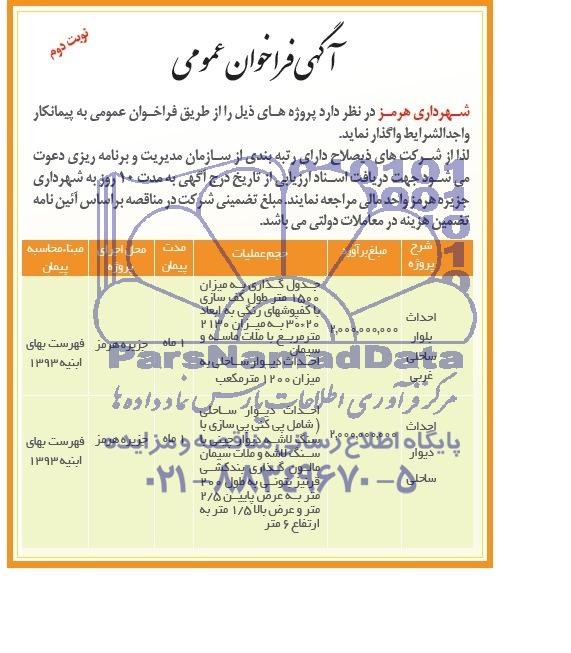 نوبت دوم
آگهی فراخوان عمومی
شهرداری هرمز در نظر دارد پروژه های ذیل را از طریق فراخوان عمومی به پیمانکار
واجدالشرایط واگذار نماید.
لذا از شرکت های ذیصلاح دارای رتبه بندی از سازمان مدیریت و برنامه ریزی دعوت
می شود جهت دریافت اسناد ارزیابی از تاریخ درج آگهی به مدت ۱۰ روز به شهرداری
جزیره هرمز واحد مالی مراجعه نمایند. مبلغ تضمینی شرکت در مناقصه براساس آئین نامه
تضمین هزینه در معاملات دولتی می باشد.
شرح پروژه
مبلغ برآورد
حجم عملیات
مدت پیمان
محل اجرای پروژه
مبناء محاسبه پیمان
احداث
بلوار
ساحلی
غربی
۲,۰۰۰,۰۰۰,۰۰۰
جدول گذاری به میزان
۱۵۰۰ متر طول کف سازی
با کفپوشهای رنگی به ابعاد
۲۰*۳۰ به میزان ۲۱۳۰
مترمربع با ملات ماسه و
سیمان
احداث دیوار ساحلی به
میزان ۱۲۰۰ مترمکعب
۱ ماه
جزیره هرمز
فهرست بهای
ابنیه ۱۳۹۳
احداث
دیوار
ساحلی
۲,۰۰۰,۰۰۰,۰۰۰
احداث دیوار ساحلی
(شامل پی کنی پی سازی با
سنگ لاشه دیوار چینی با
سنگ لاشه و ملات سیمان
مالون گذاری بندکشی
قرنیز بتونی به طول ۲۰۰
متر به عرض پایین ۲/۵
متر و عرض بالا ۱/۵ متر به
ارتفاع ۶ متر
۱ ماه
جزیره هرمز
فهرست بهای
ابنیه ۱۳۹۳
ParsNamadData
مرکز فرآوری اطلاعات پارس نماد داده ها
پایگاه اطلاع رسانی مناقصه و مزایده
۰۲۱-۸۸۳۴۹۶۷۰-۵